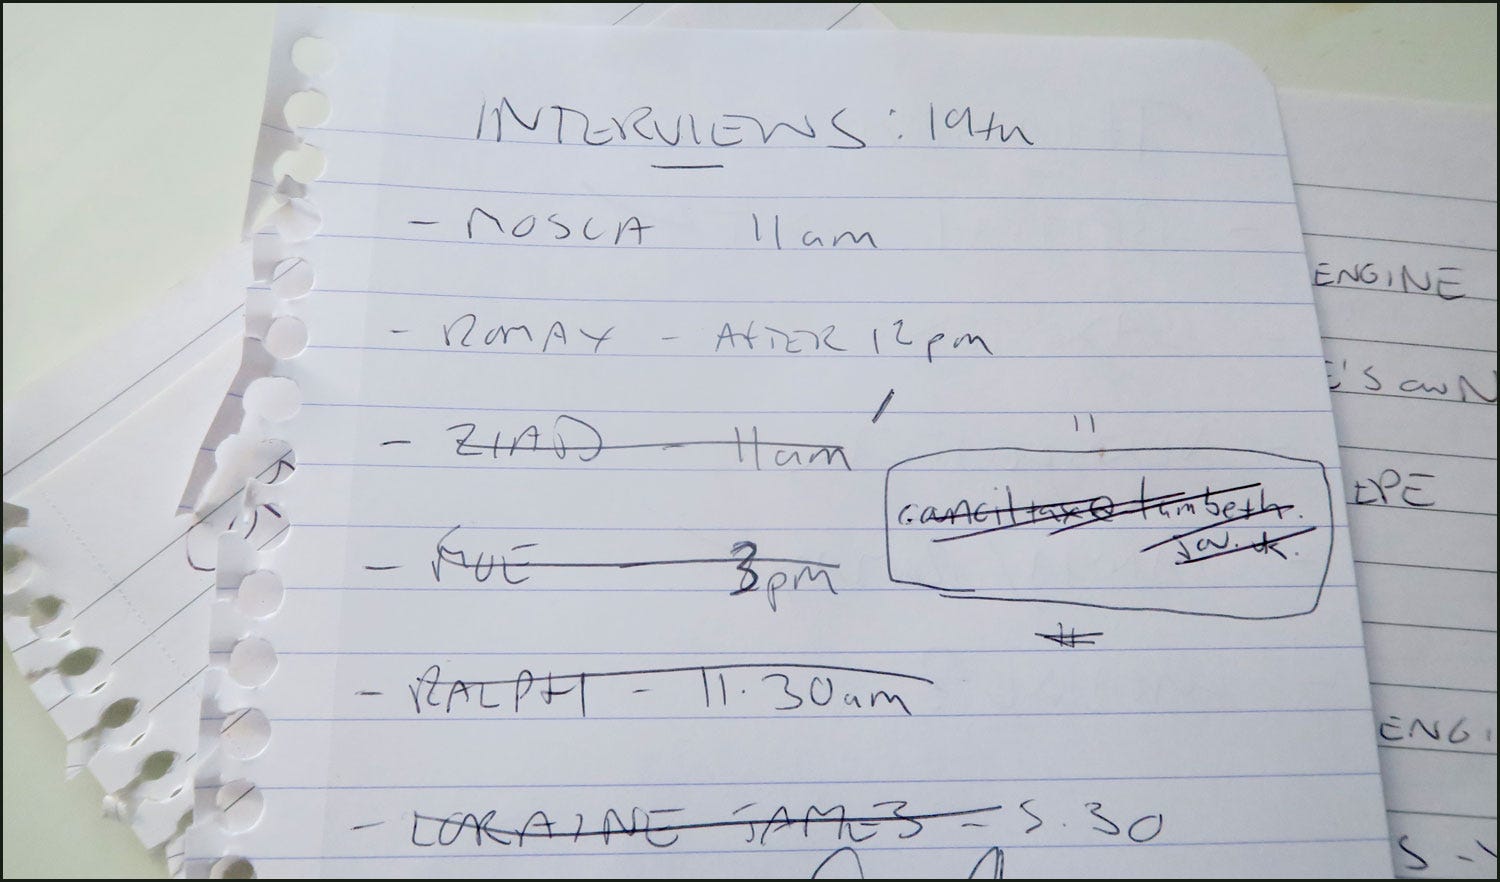 INTERVIEWS: 19th
- MOSCA 11am
- ROMAX - AFTER 12pm
- ZIAD - 11am
- MOE 3pm
- RALPH - 11.30am
- LORAINE JAMES - 5.30
counciltax@lambeth.
gov.uk.
ENGINE
E'S OWN
EPE
ENGI